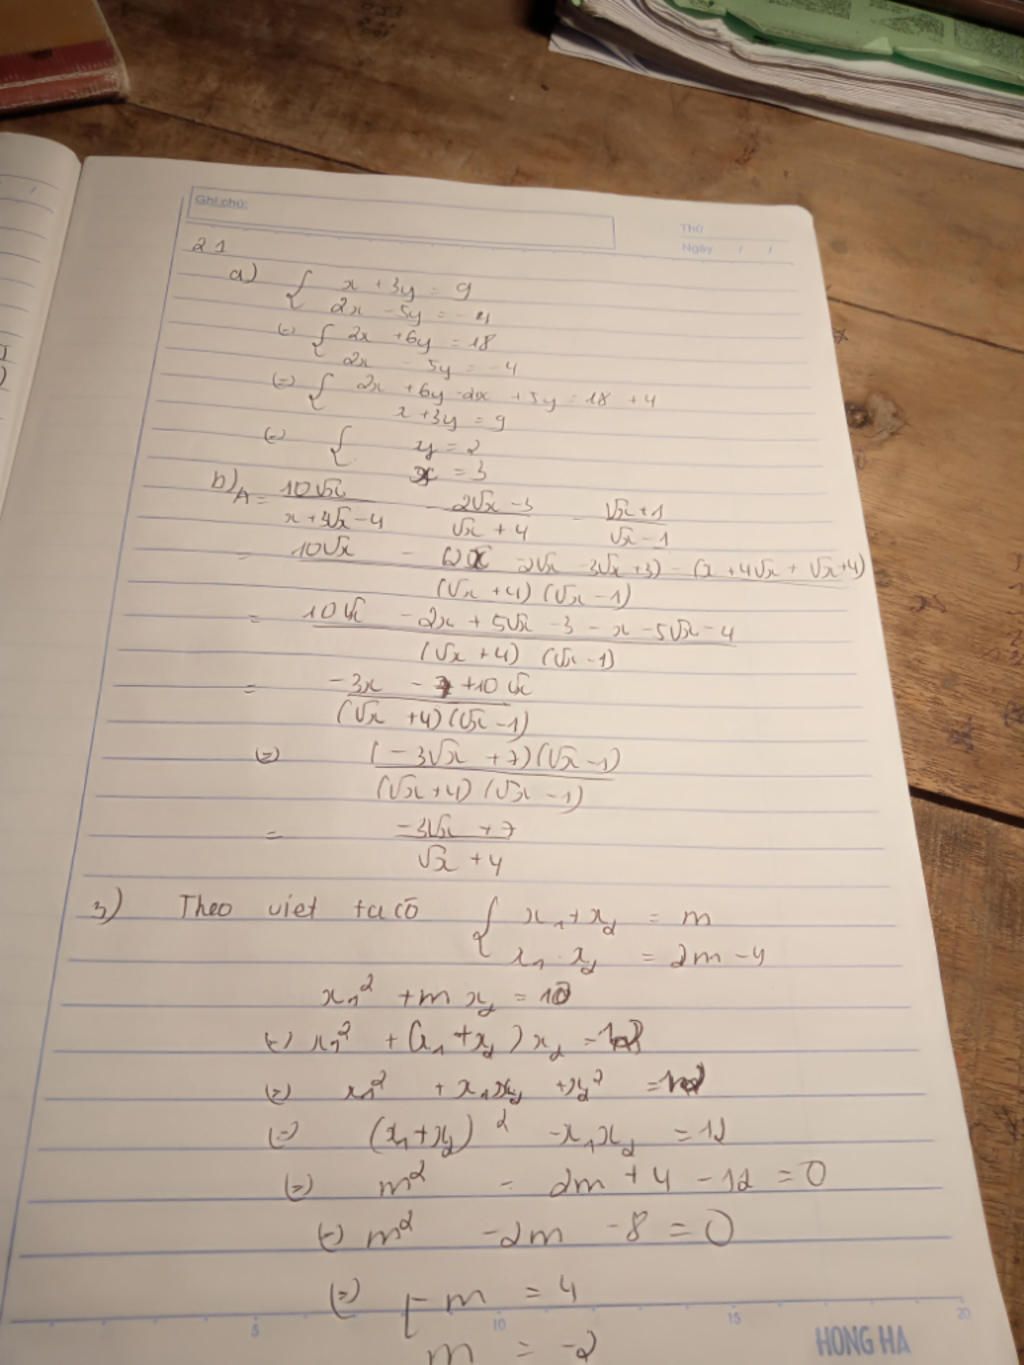 Ghi chú:
Thứ
Ngày / /
21
a) { x + 3y = 9
2x - 5y = -4
(=) { 2x + 6y = 18
2x - 5y = -4
(=) { 2x + 6y - 2x + 5y = 18 + 4
x + 3y = 9
(=) { y = 2
x = 3
b) A = 10√x / (x + 3√x - 4) - (2√x - 3) / (√x + 4) - (√x + 1) / (√x - 1)
= (10√x - (2x - 2√x - 3√x + 3) - (x + 4√x + √x + 4)) / ((√x + 4)(√x - 1))
= (10√x - 2x + 5√x - 3 - x - 5√x - 4) / ((√x + 4)(√x - 1))
= (-3x - 7 + 10√x) / ((√x + 4)(√x - 1))
(=) (-3√x + 7)(√x - 1) / ((√x + 4)(√x - 1))
= (-3√x + 7) / (√x + 4)
3) Theo viet ta có { x₁ + x₂ = m
x₁ . x₂ = 2m - 4
x₁² + m x₂ = 12
(=) x₁² + (x₁ + x₂) x₂ = 12
(=) x₁² + x₁x₂ + x₂² = 12
(=) (x₁ + x₂)² - x₁x₂ = 12
(=) m² - 2m + 4 - 12 = 0
(=) m² - 2m - 8 = 0
(=) [ m = 4
m = -2
5 10 15 20
HONG HA